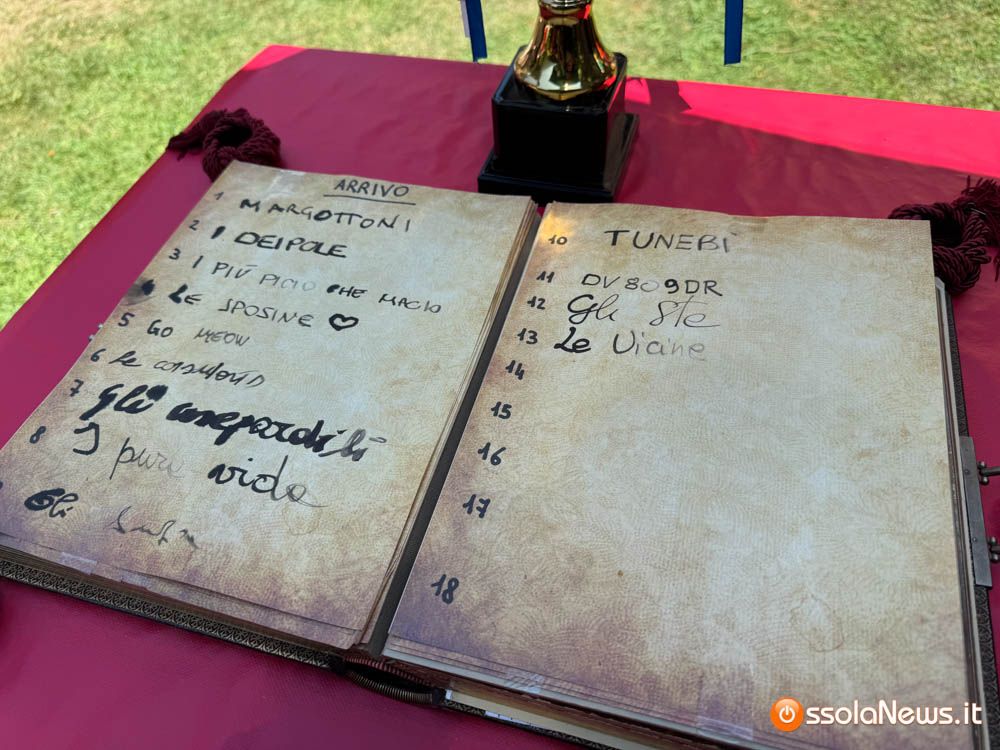 ARRIVO
1 MARGOTTONI
2 I DEIPOLE
3 I PIÙ PICIO CHE MACIO
LE SPOSINE ♡
5 GO MEOW
6 Le
7 Gli
8 I pura vida
Gli
10 TUNEBI
11 DV809DR
12 Gli Ste
13 Le Vicine
14
15
16
17
18
ossolaNews.it